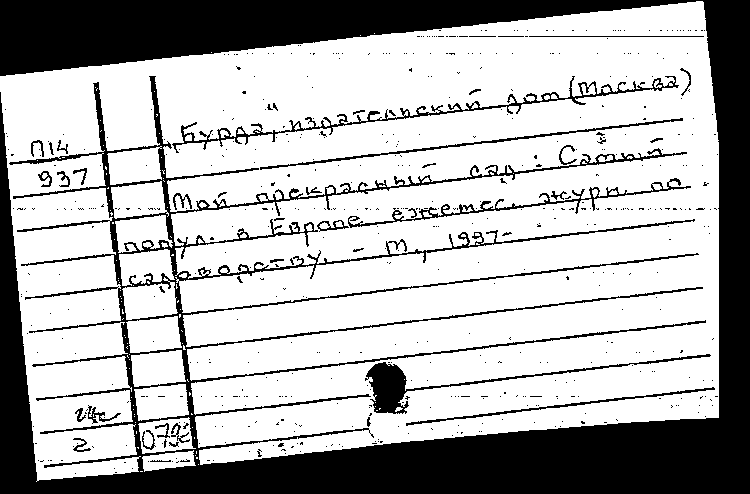 „Бурда", издательский дом (Москва)
П14
937
Мой прекрасный сад : Самый
попул. в Европе ежемес. журн. по
садоводству. - М., 1997-
2 079